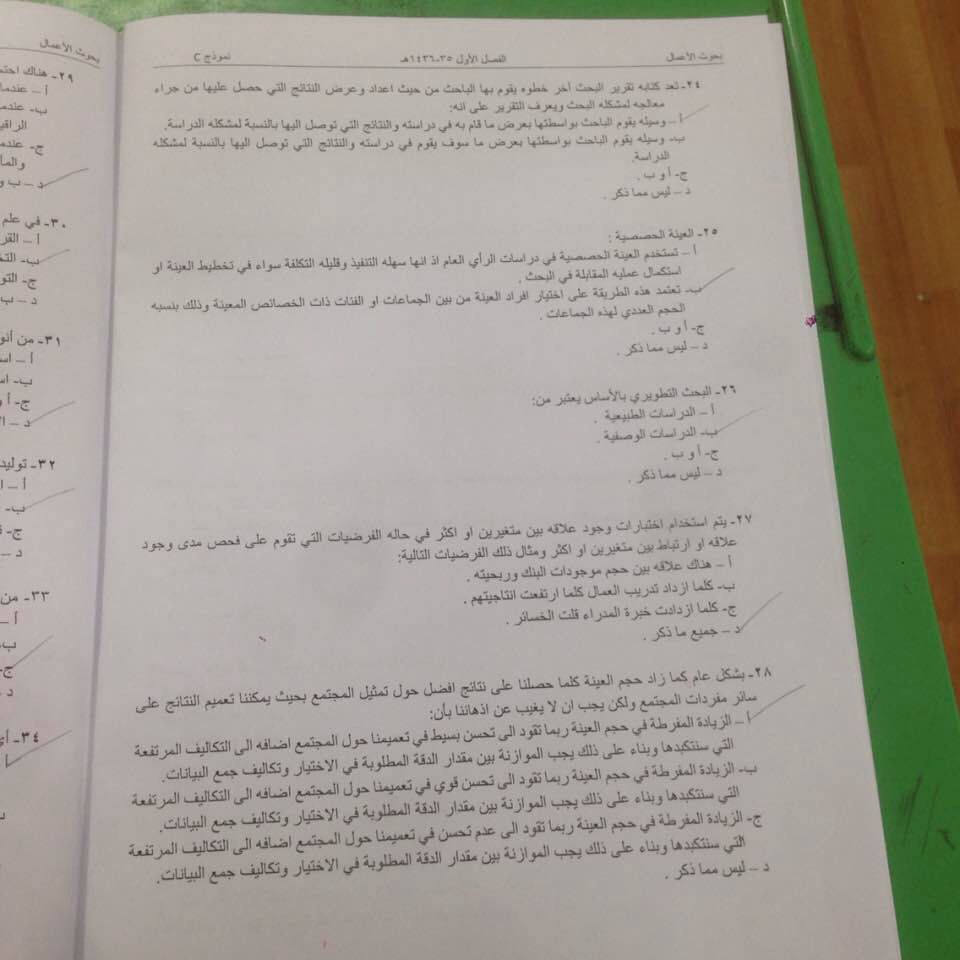 بحوث الأعمال
الفصل الأول ٣٥-١٤٣٦هـ
نموذج C
٢٤- تعد كتابه تقرير البحث أخر خطوه يقوم بها الباحث من حيث اعداد وعرض النتائج التي حصل عليها من جراء
معالجه لمشكله البحث ويعرف التقرير على انه:
أ – وسيله يقوم الباحث بواسطتها بعرض ما قام به في دراسته والنتائج التي توصل اليها بالنسبة لمشكله الدراسة.
ب- وسيله يقوم الباحث بواسطتها بعرض ما سوف يقوم في دراسته والنتائج التي توصل اليها بالنسبة لمشكله
الدراسة.
ج- أ و ب .
د – ليس مما ذكر .
٢٥- العينة الحصصية :
أ – تستخدم العينة الحصصية في دراسات الرأي العام اذ انها سهله التنفيذ وقليله التكلفة سواء في تخطيط العينة او
استكمال عمليه المقابلة في البحث .
ب- تعتمد هذه الطريقة على اختيار افراد العينة من بين الجماعات او الفئات ذات الخصائص المعينة وذلك بنسبه
الحجم العددي لهذه الجماعات .
ج- أ و ب .
د – ليس مما ذكر .
٢٦- البحث التطويري بالأساس يعتبر من:
أ – الدراسات الطبيعية .
ب- الدراسات الوصفية .
ج- أ و ب .
د – ليس مما ذكر .
٢٧- يتم استخدام اختبارات وجود علاقه بين متغيرين او اكثر في حاله الفرضيات التي تقوم على فحص مدى وجود
علاقه او ارتباط بين متغيرين او اكثر ومثال ذلك الفرضيات التالية:
أ – هناك علاقه بين حجم موجودات البنك وربحيته .
ب- كلما ازداد تدريب العمال كلما ارتفعت انتاجيتهم .
ج- كلما ازدادت خبرة المدراء قلت الخسائر .
د – جميع ما ذكر .
٢٨- بشكل عام كما زاد حجم العينة كلما حصلنا على نتائج افضل حول تمثيل المجتمع بحيث يمكننا تعميم النتائج على
سائر مفردات المجتمع ولكن يجب ان لا يغيب عن اذهاننا بأن:
أ – الزيادة المفرطة في حجم العينة ربما تقود الى تحسن بسيط في تعميمنا حول المجتمع اضافه الى التكاليف المرتفعة
التي سنتكبدها وبناء على ذلك يجب الموازنة بين مقدار الدقة المطلوبة في الاختيار وتكاليف جمع البيانات.
ب- الزيادة المفرطة في حجم العينة ربما تقود الى تحسن قوي في تعميمنا حول المجتمع اضافه الى التكاليف المرتفعة
التي سنتكبدها وبناء على ذلك يجب الموازنة بين مقدار الدقة المطلوبة في الاختيار وتكاليف جمع البيانات.
ج- الزيادة المفرطة في حجم العينة ربما تقود الى عدم تحسن في تعميمنا حول المجتمع اضافه الى التكاليف المرتفعة
التي سنتكبدها وبناء على ذلك يجب الموازنة بين مقدار الدقة المطلوبة في الاختيار وتكاليف جمع البيانات.
د – ليس مما ذكر .
بحوث الأعمال
٢٩- هناك
أ – عندما
ب- عندما
ج- عندما
د – ب و
٣٠- في علم
أ –
ب-
ج-
د – ب
٣١- من
أ –
ب-
ج- أ
د –
٣٢-
أ –
ب-
ج-
د –
٣٣- من
أ –
ب-
ج-
د
٣٤-
أ